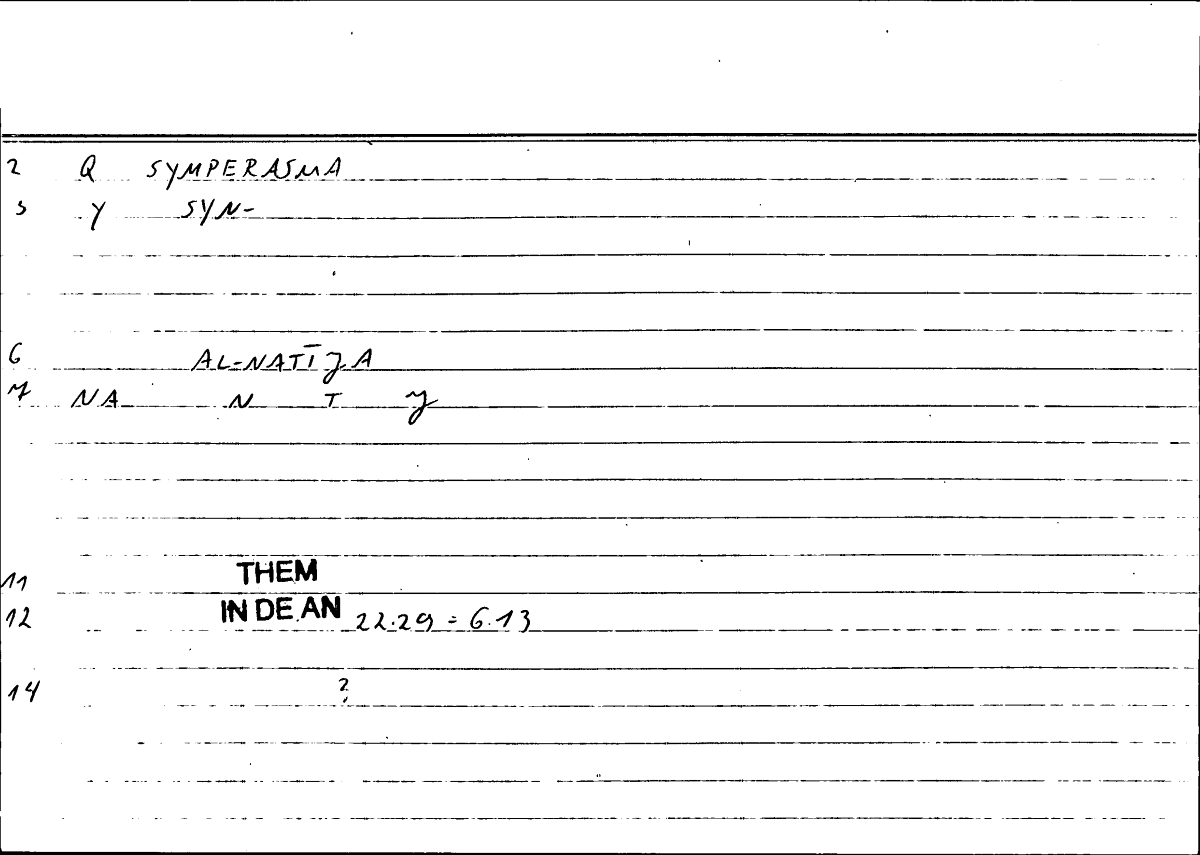 2 Q SYMPERASMA
3 Y SYN-
6 AL-NATĪJA
7 NA N T J
11 THEM
12 IN DE AN 22.29 = 6.13
14 ?